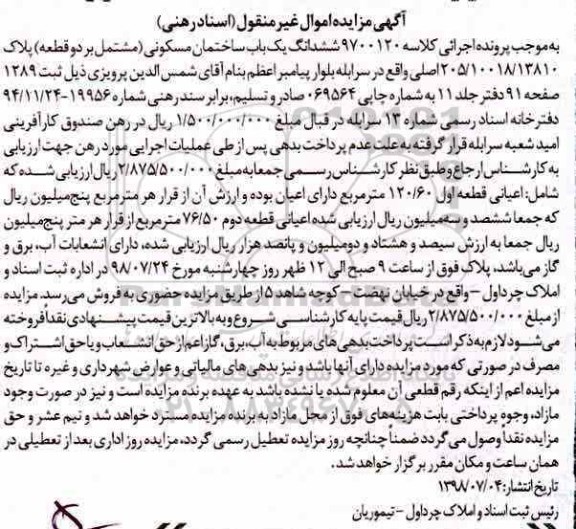 آگهی مزایده اموال غیر منقول (اسناد رهنی)
به موجب پرونده اجرائی کلاسه ۹۷۰۰۱۲۰ ششدانگ یک باب ساختمان مسکونی (مشتمل بر دو قطعه) پلاک
۲۰۵/۱۰۰۱۸/۱۳۸۱۰ اصلی واقع در سرابله بلوار پیامبر اعظم بنام آقای شمس الدین پرویزی ذیل ثبت ۱۲۸۹
صفحه ۹۱ دفتر جلد ۱۱ به شماره چاپی ۰۶۹۵۶۴ صادر و تسلیم، برابر سند رهنی شماره ۱۹۹۵۶-۹۴/۱۱/۲۴
دفترخانه اسناد رسمی شماره ۱۳ سرابله در قبال مبلغ ۱/۵۰۰/۰۰۰/۰۰۰ ریال در رهن صندوق کارآفرینی
امید شعبه سرابله قرار گرفته به علت عدم پرداخت بدهی پس از طی عملیات اجرایی مورد رهن جهت ارزیابی
به کارشناس ارجاع و طبق نظر کارشناس رسمی جمعا به مبلغ ۲/۸۷۵/۵۰۰/۰۰۰ ریال ارزیابی شده که
شامل: اعیانی قطعه اول ۱۲۰/۶۰ مترمربع دارای اعیان بوده و ارزش آن از قرار هر مترمربع پنج میلیون ریال
که جمعا ششصد و سه میلیون ریال ارزیابی شده اعیانی قطعه دوم ۷۶/۵۰ متر مربع از قرار هر متر پنج میلیون
ریال جمعا به ارزش سیصد و هشتاد و دو میلیون و پانصد هزار ریال ارزیابی شده، دارای انشعابات آب، برق و
گاز می‌باشد، پلاک فوق از ساعت ۹ صبح الی ۱۲ ظهر روز چهارشنبه مورخ ۹۸/۰۷/۲۴ در اداره ثبت اسناد و
املاک چرداول - واقع در خیابان نهضت - کوچه شاهد ۵ از طریق مزایده حضوری به فروش می‌رسد. مزایده
از مبلغ ۲/۸۷۵/۵۰۰/۰۰۰ ریال قیمت پایه کارشناسی شروع و به بالاترین قیمت پیشنهادی نقدا فروخته
می‌شود لازم به ذکر است پرداخت بدهی های مربوط به آب، برق، گاز اعم از حق انشعاب و یا حق اشتراک و
مصرف در صورتی که مورد مزایده دارای آنها باشد و نیز بدهی های مالیاتی و عوارض شهرداری و غیره تا تاریخ
مزایده اعم از اینکه رقم قطعی آن معلوم شده یا نشده باشد به عهده برنده مزایده است و نیز در صورت وجود
مازاد، وجوه پرداختی بابت هزینه‌های فوق از محل مازاد به برنده مزایده مسترد خواهد شد و نیم عشر و حق
مزایده نقدا وصول می گردد ضمناً چنانچه روز مزایده تعطیل رسمی گردد، مزایده روز اداری بعد از تعطیلی در
همان ساعت و مکان مقرر برگزار خواهد شد.
تاریخ انتشار: ۱۳۹۸/۰۷/۰۴
رئیس ثبت اسناد و املاک چرداول - تیموریان